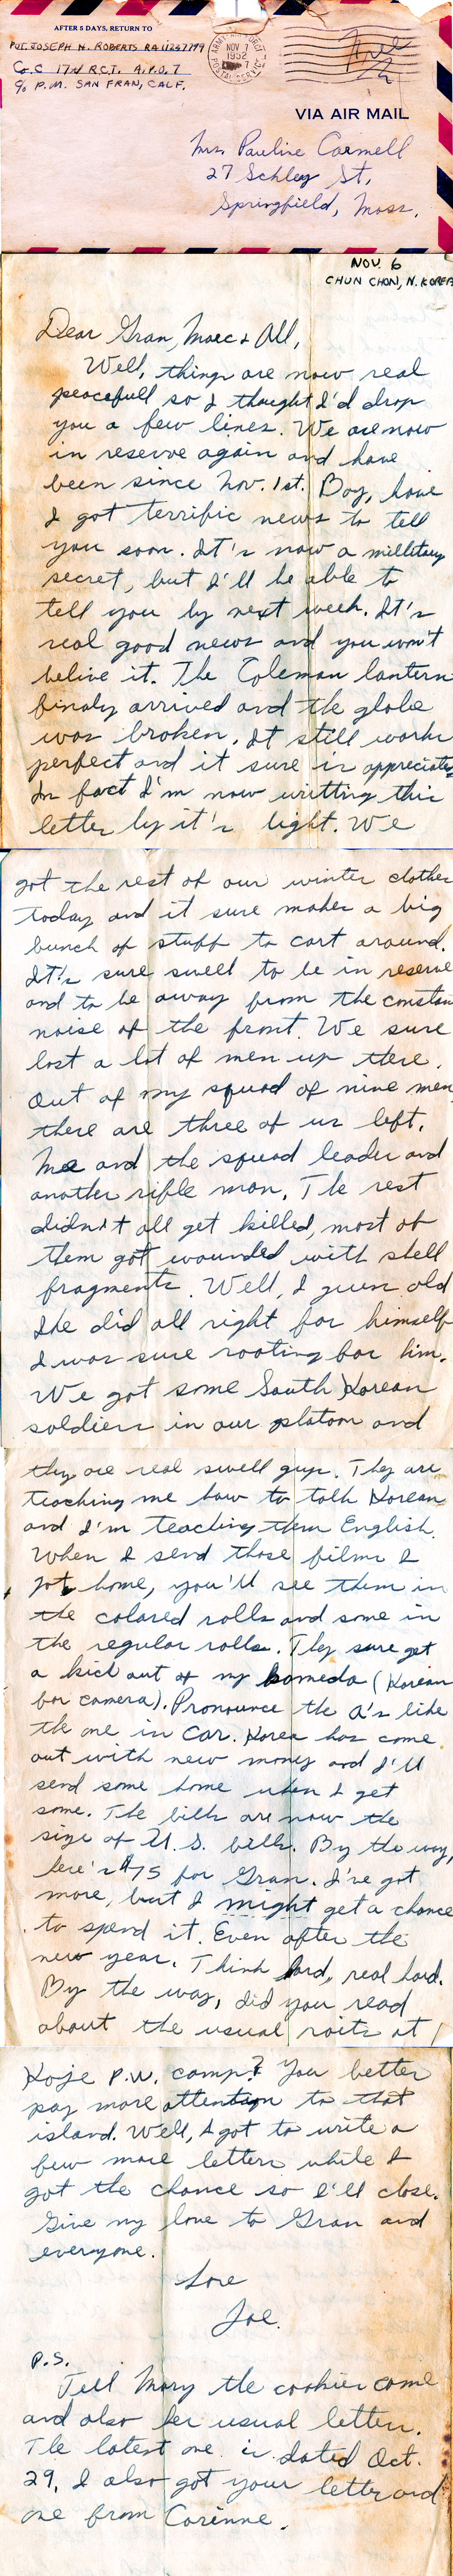 AFTER 5 DAYS, RETURN TO
PVT. JOSEPH N. ROBERTS RA11237799
Co. C 17th R.C.T. A.P.O. 7
% P.M. SAN FRAN, CALF.
NOV 7
1952
POSTAL SERVICE
Free
VIA AIR MAIL
Mrs Pauline Carmell
27 Schley St,
Springfield, Mass.
NOV. 6
CHUN CHON, N. KOREA
Dear Gran, Marc & All,
Well, things are now real
peacefull so I thought I'd drop
you a few lines. We are now
in reserve again and have
been since Nov. 1st. Boy, have
I got terrific news to tell
you soon. It's now a millitary
secret, but I'll be able to
tell you by next week. It's
real good news and you won't
belive it. The Coleman lantern
finaly arrived and the globe
was broken. It still works
perfect and it sure is appreciated
In fact I'm now writting this
letter by it's light. We
got the rest of our winter clothes
today and it sure makes a big
bunch of stuff to cart around.
It's sure swell to be in reserve
and to be away from the constan
noise of the front. We sure
lost a lot of men up there.
Out of my squad of nine men
there are three of us left.
Me and the squad leader and
another rifle man. The rest
didn't all get killed, most of
them got wounded with shell
fragments. Well, I guess old
Ike did all right for himself
I was sure rooting for him.
We got some South Korean
soldiers in our platoon and
they are real swell guys. They are
teaching me how to talk Korean
and I'm teaching them English.
When I send those films I
got home, you'll see them in
the colored rolls and some in
the regular rolls. They sure get
a kick out of my kameda (Korean
for camera). Pronounce the a's like
the one in car. Korea has come
out with new money and I'll
send some home when I get
some. The bills are now the
size of U.S. bills. By the way,
here's $75 for Gran. I've got
more, but I might get a chance
to spend it. Even after the
new year. Think hard, real hard.
By the way, did you read
about the usual roits at
Koje P.W. camp? You better
pay more attention to that
island. Well, I got to write a
few more letters while I
got the chance so I'll close.
Give my love to Gran and
everyone.
Love
Joe.
P.S.
Tell Mary the cookies come
and also her usual letter.
The latest one is dated Oct.
29. I also got your letter and
one from Corinne.